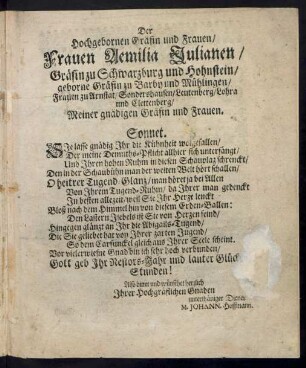 Der
Hochgebornen Gräfin und Frauen/
Frauen Aemilia Julianen/
Gräfin zu Schwarzburg und Hohnstein/
geborne Gräfin zu Barby und Mühlingen/
Frauen zu Arnstat/ Sondershausen/ Leutenberg/ Lohra
und Clettenberg/
Meiner gnädigen Gräfin und Frauen.
Sonnet.
SIe lasse gnädig Ihr die Kühnheit wolgefallen/
Der meine Demuths-Pflicht allhier sich unterfängt/
Und Ihren hohen Ruhm in diesen Schauplaz schrenckt/
Den in der Schaubühn man der weiten Welt hört schallen/
O heitrer Tugend-Glanz/ man höret ja bei Allen
Von Ihrem Tugend-Ruhm/ da Ihrer man gedenckt
Im besten allezeit/ weil Sie Ihr Herze lenckt
Bloß nach dem Himmel hin von diesem Erden-Ballen:
Den Lastern Jzebels ist Sie von Herzen feind/
Hingegen glänzt an Ihr die Abigails-Tugend/
Die Sie geliebet hat von Ihrer zarten Jugend/
So dem Carfunckel gleich aus Ihrer Seele scheint.
Vor viel erwiesne Gnad bin ich sehr hoch verbunden/
Gott geb Ihr Nestors-Jahr und lauter Glück-
Stunden!
Also bittet und wünschet herzlich
Ihrer Hochgräflichen Gnaden
unterthäniger Diener
M. JOHANN. Hoffmann.